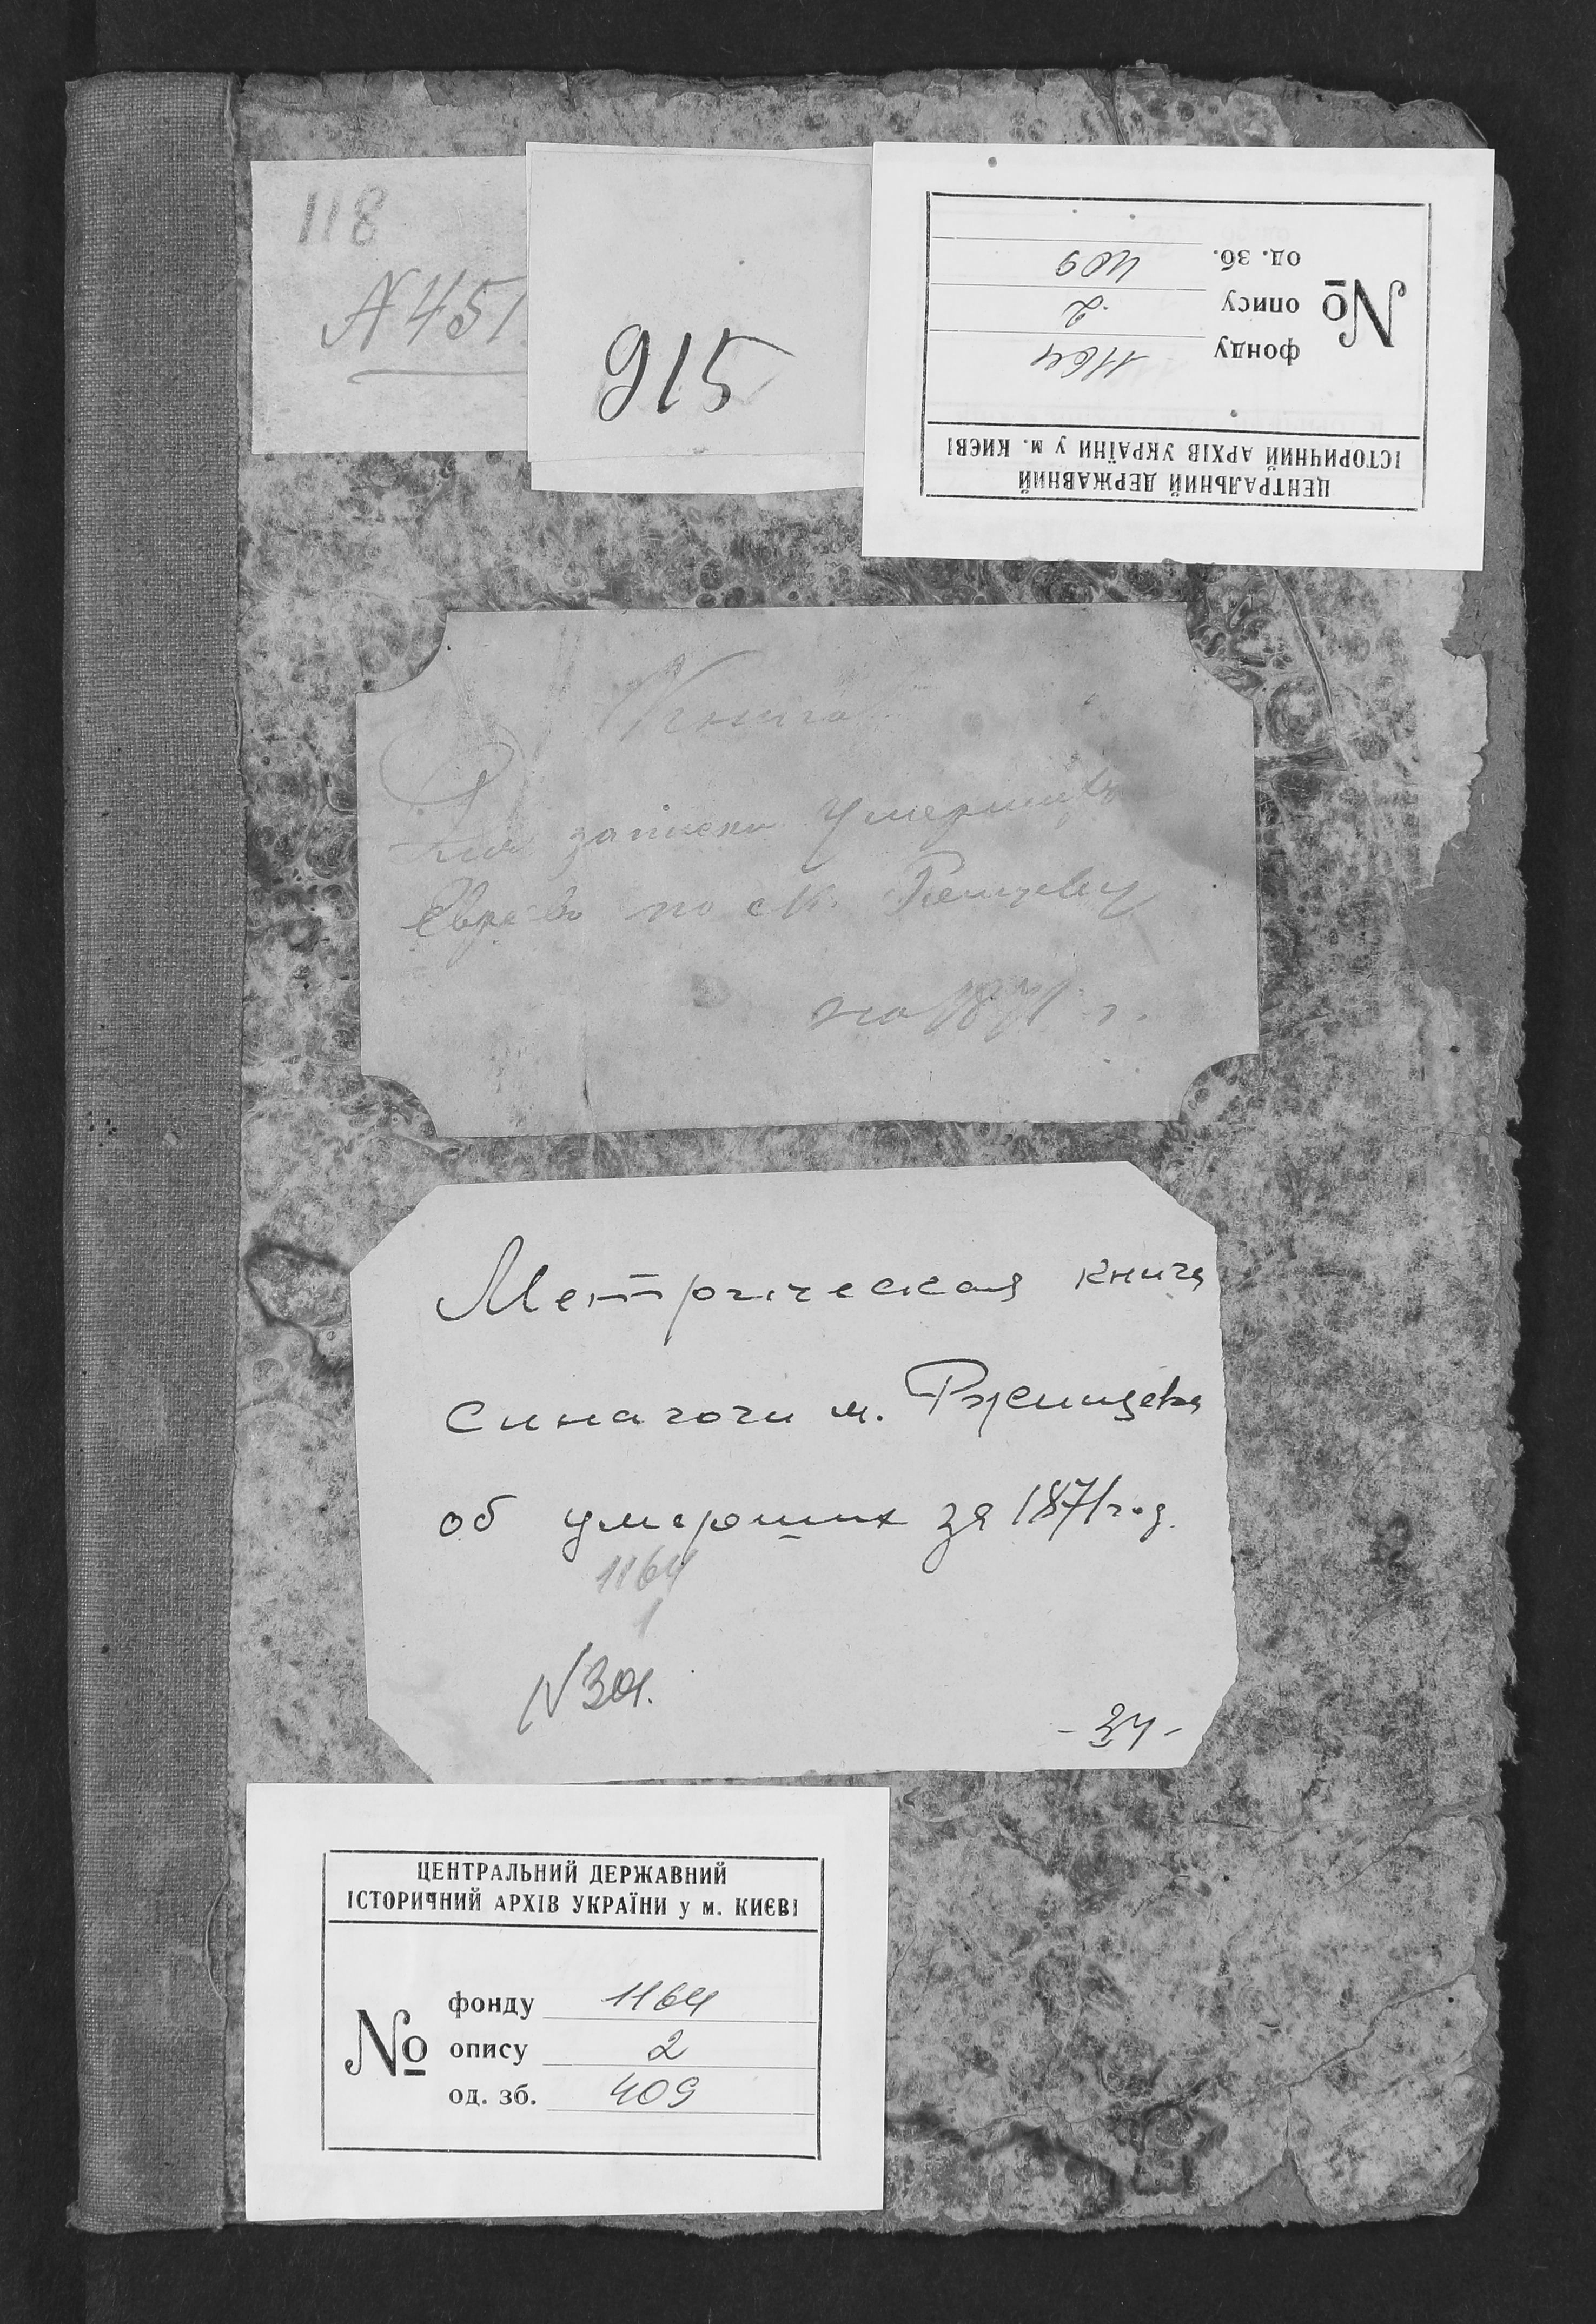 118
N 451
915
ЦЕНТРАЛЬНИЙ ДЕРЖАВНИЙ
ІСТОРИЧНИЙ АРХІВ УКРАЇНИ у м. КИЄВІ
№
фонду 1164
опису 2
од. зб. 409
Книга
Для записки Умершихъ
Евреевъ по М. Ржищеву
на 1871 г.
Метрическая книга
синагоги м. Ржищева
об умерших за 1871 год.
1164
1
N 301.
- 34 -
ЦЕНТРАЛЬНИЙ ДЕРЖАВНИЙ
ІСТОРИЧНИЙ АРХІВ УКРАЇНИ у м. КИЄВІ
№
фонду 1164
опису 2
од. зб. 409